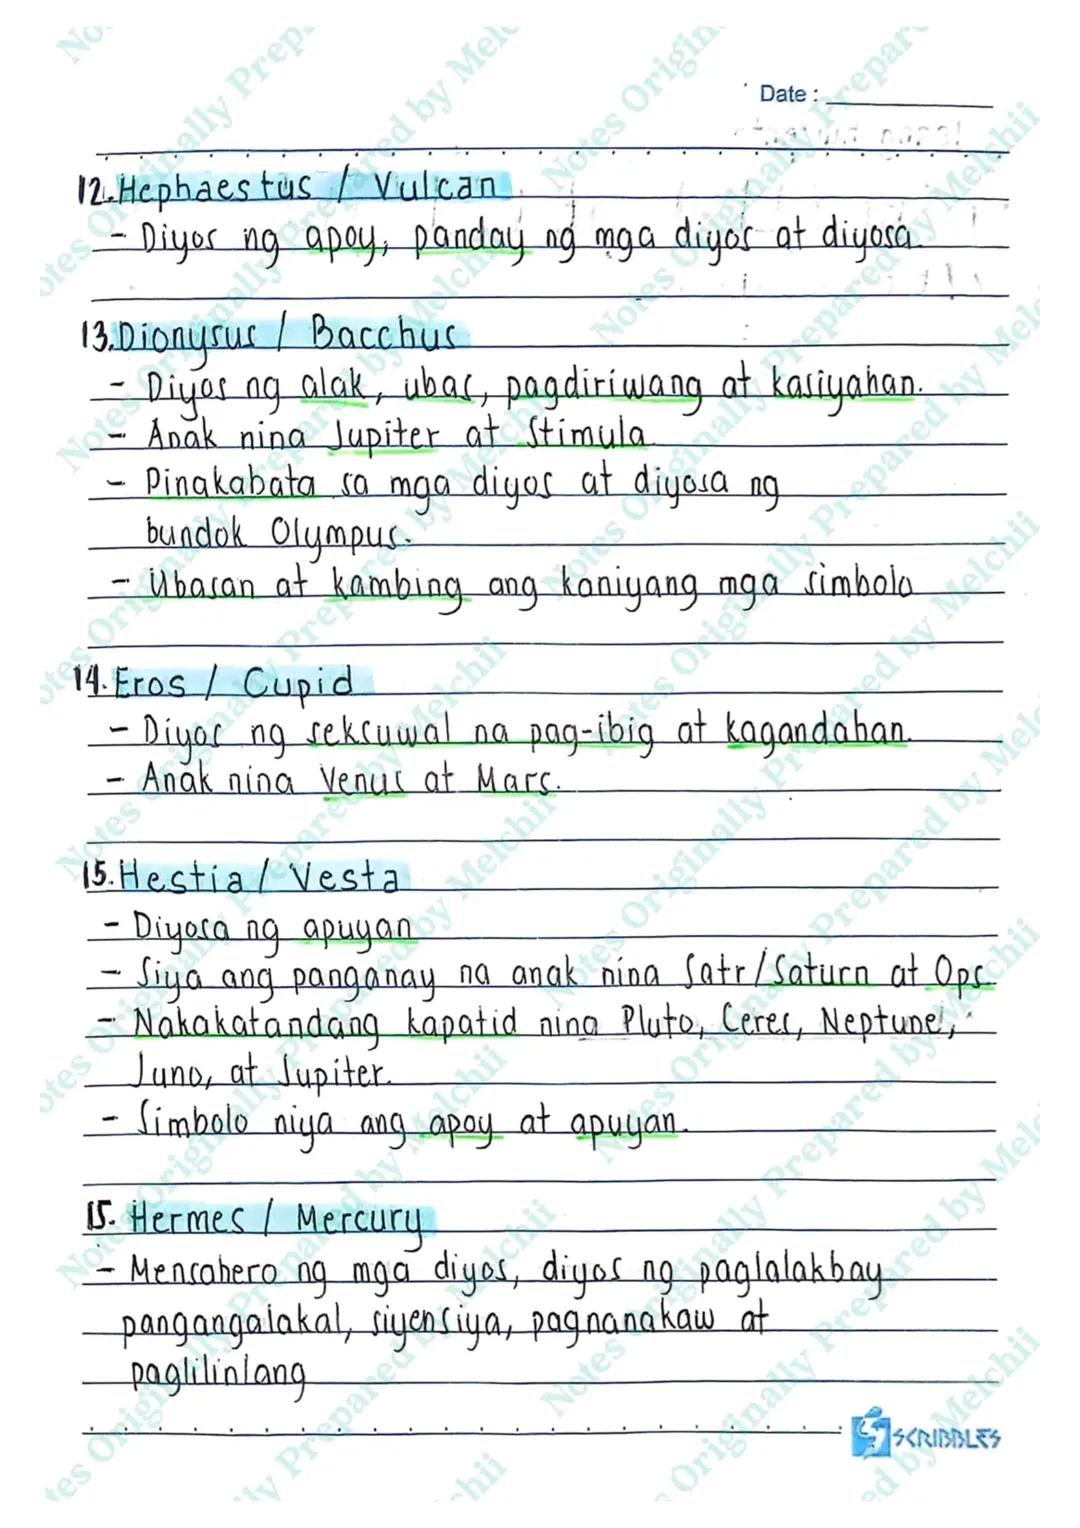 Date :
12. Hephaestus / Vulcan
- Diyos ng apoy, panday ng mga diyos at diyosa
13. Dionysus / Bacchus
- Diyos ng alak, ubas, pagdiriwang at kasiyahan.
- Anak nina Jupiter at Stimula
- Pinakabata sa mga diyos at diyosa ng
bundok Olympus.
- Ubasan at kambing ang kaniyang mga simbolo
14. Eros / Cupid
- Diyos ng seksuwal na pag-ibig at kagandahan.
- Anak nina Venus at Mars.
15. Hestia / Vesta
- Diyosa ng apuyan
- Siya ang panganay na anak nina Satr/Saturn at Ops
- Nakakatandang kapatid nina Pluto, Ceres, Neptune,
Juno, at Jupiter.
- Simbolo niya ang apoy at apuyan.
15. Hermes / Mercury
- Mensahero ng mga diyos, diyos ng paglalakbay
pangangalakal, siyensiya, pagnanakaw at
paglilinlang
SCRIBBLES
Notes Originally Prepared by Melchii